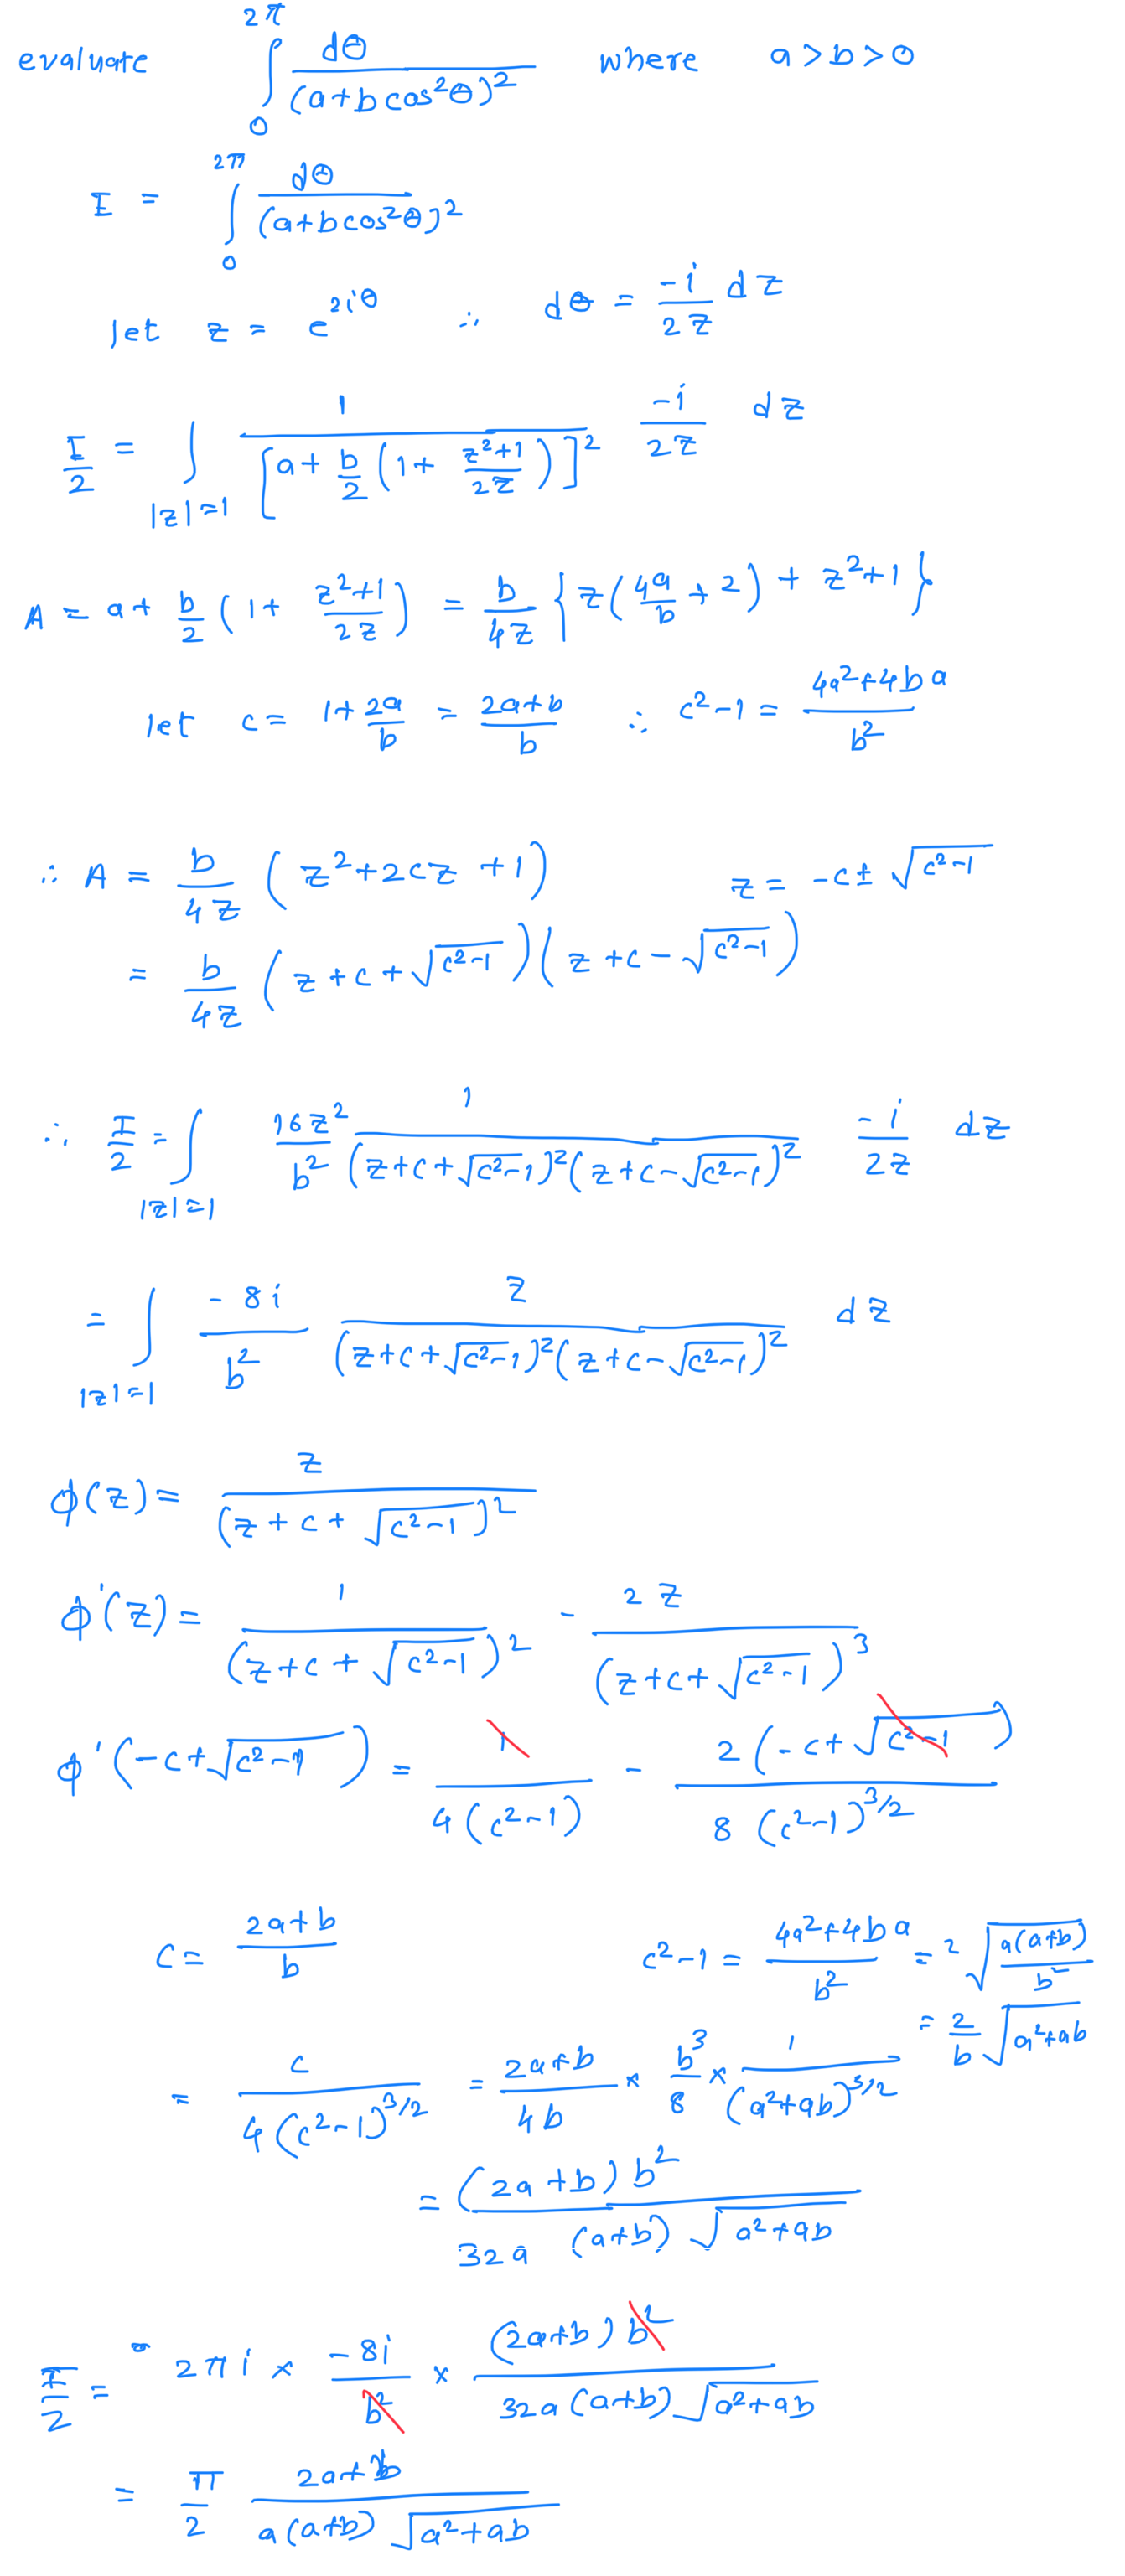 evaluate ∫₀^{2π} dθ/(a+b cos²θ)² where a>b>0
I = ∫₀^{2π} dθ/(a+b cos²θ)²
let z = e^{2iθ} ∴ dθ = -i/(2z) dz
I/2 = ∫_{|z|=1} 1/[a + b/2 (1 + (z²+1)/(2z))]² -i/(2z) dz
A = a + b/2 (1 + (z²+1)/(2z)) = b/(4z) {z(4a/b + 2) + z²+1}
let c = 1 + 2a/b = (2a+b)/b ∴ c²-1 = (4a²+4ba)/b²
∴ A = b/(4z) (z²+2cz+1) z = -c ± √(c²-1)
= b/(4z) (z+c+√(c²-1)) (z+c-√(c²-1))
∴ I/2 = ∫_{|z|=1} 16z²/b² 1/((z+c+√(c²-1))² (z+c-√(c²-1))²) -i/(2z) dz
= ∫_{|z|=1} -8i/b² z/((z+c+√(c²-1))² (z+c-√(c²-1))²) dz
ϕ(z) = z/(z+c+√(c²-1))²
ϕ'(z) = 1/(z+c+√(c²-1))² - 2z/(z+c+√(c²-1))³
ϕ'(-c+√(c²-1)) = 1/(4(c²-1)) - 2(-c+√(c²-1))/(8(c²-1)^{3/2})
c = (2a+b)/b c²-1 = (4a²+4ba)/b² = 2√(a(a+b)/b²)
= 2/b √(a²+ab)
= c/(4(c²-1)^{3/2}) = (2a+b)/(4b) × b³/8 × 1/(a²+ab)^{3/2}
= (2a+b)b²/(32a(a+b)√(a²+ab))
I/2 = 2πi × -8i/b² × (2a+b)b²/(32a(a+b)√(a²+ab))
= π/2 (2a+b)/(a(a+b)√(a²+ab))